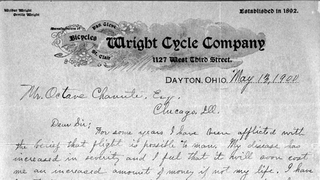 Wilbur Wright
Orville Wright
Established in 1892.
Bicycles
Van Cleve
St. Clair
Wright Cycle Company
1127 West Third Street.
DAYTON, OHIO, May 13, 1900
Mr. Octave Chanute, Esq.
Chicago, Ill.
Dear Sir;
For some years I have been afflicted with
the belief that flight is possible to man. My disease has
increased in severity and I feel that it will soon cost
me an increased amount of money if not my life. I have